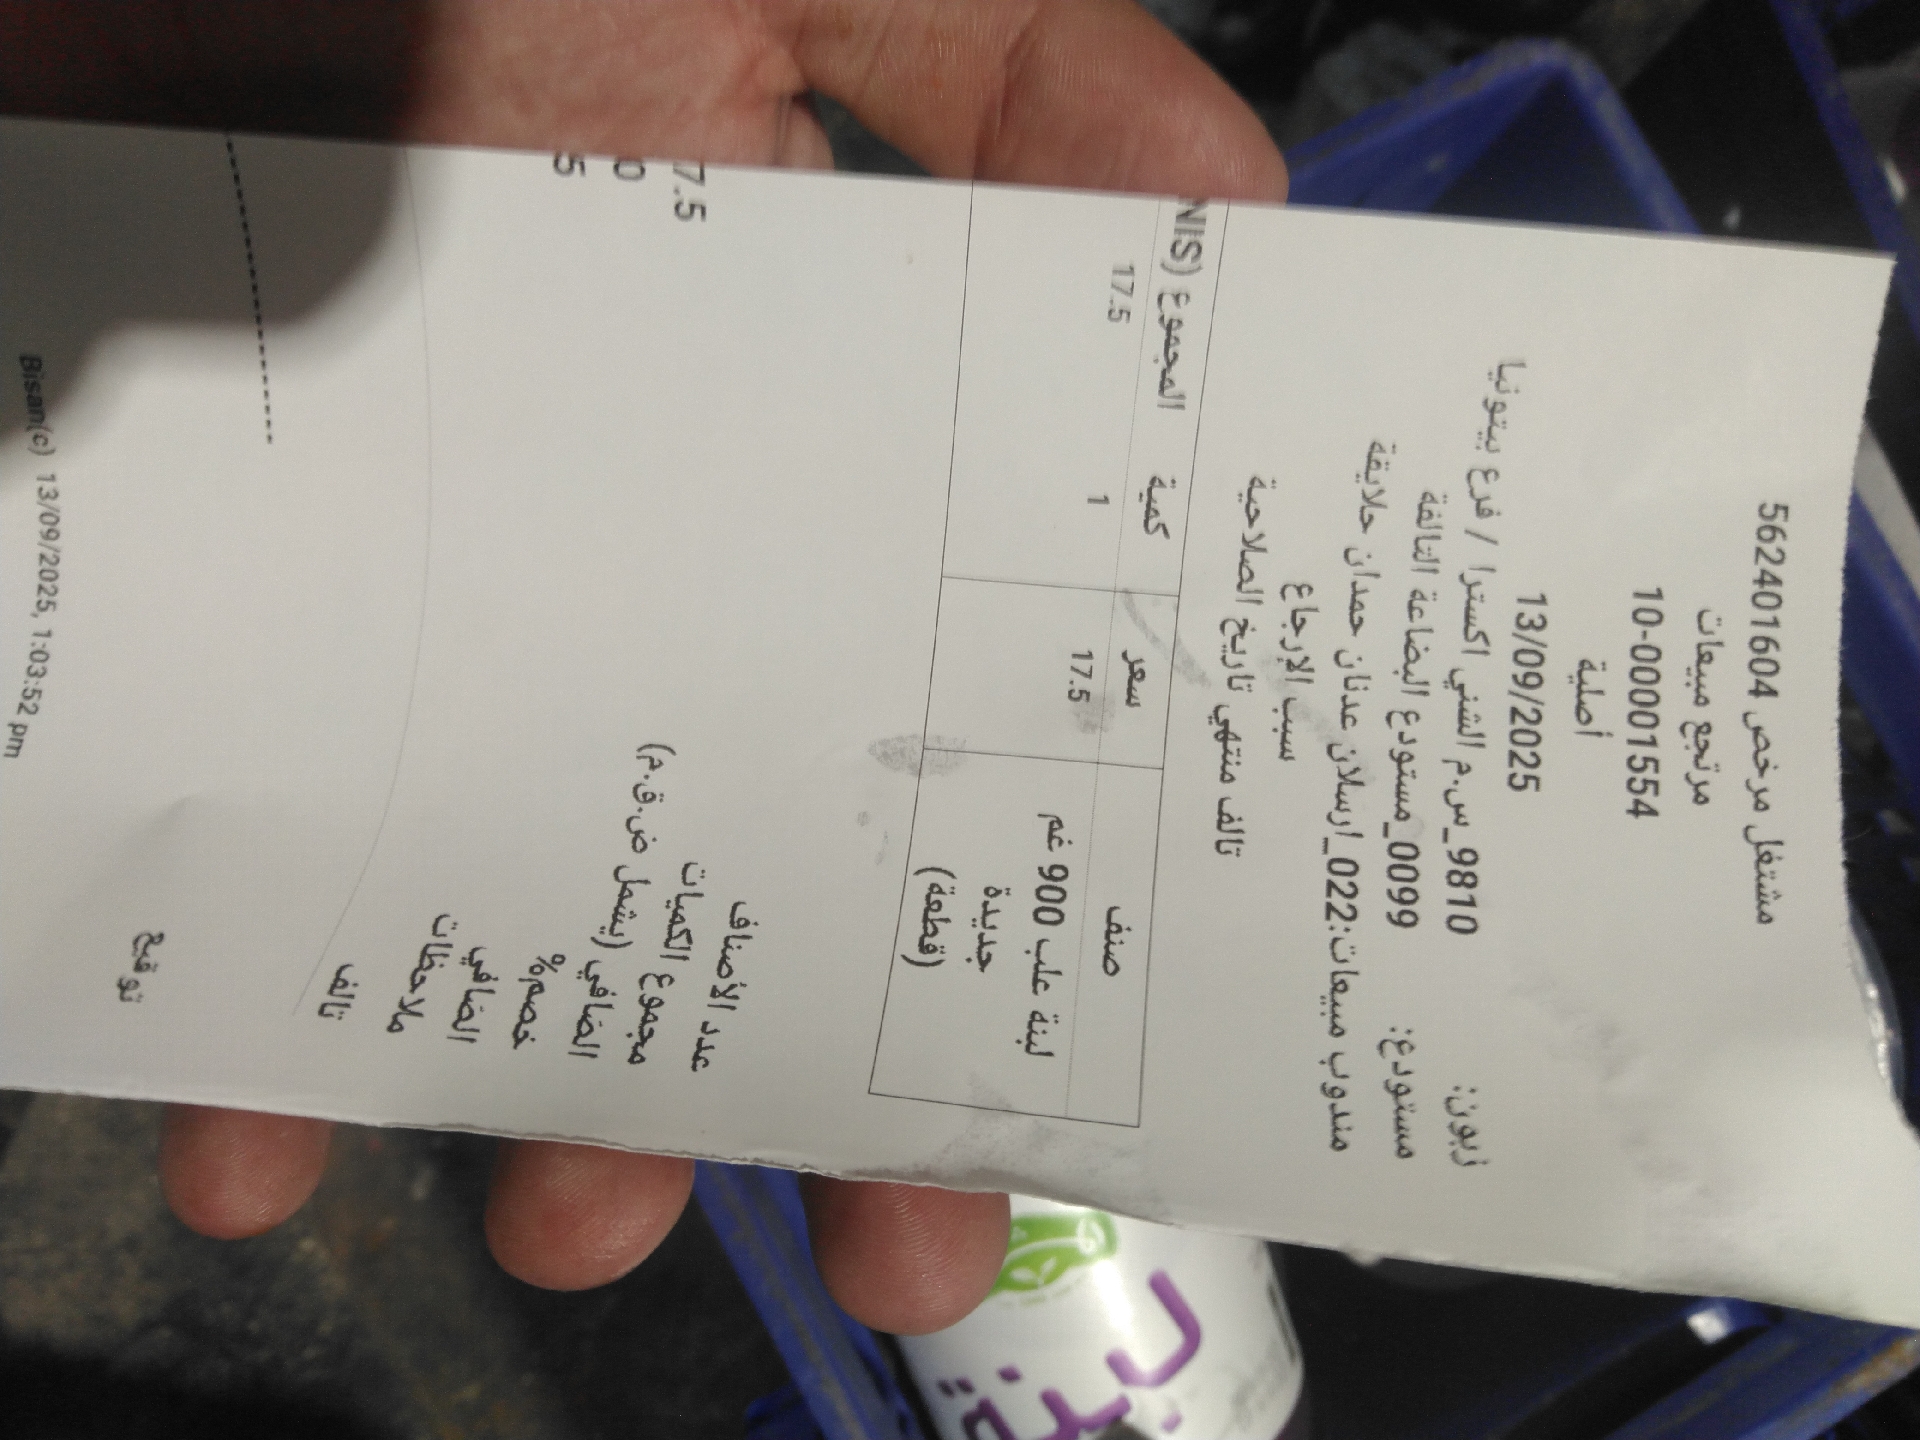 مشتغل مرخص 562401604
مرتجع مبيعات
10-00001554
أصلية
13/09/2025
زبون: 9810_س.م الشني اكسترا / فرع بيتونيا
مستودع: 0099_مستودع البضاعة التالفة
مندوب مبيعات:022_ارسلان عدنان حمدان حلايقة
سبب الإرجاع
تالف منتهي تاريخ الصلاحية
صنف سعر كمية المجموع (NIS
لبنة علب 900 غم 17.5 1 17.5
جديدة
(قطعة)
عدد الأصناف
مجموع الكميات
الصافي (يشمل ض.ق.م) 7.5
خصم% 0
الصافي 5
ملاحظات
تالف
توقيع
Bisan(c) 13/09/2025, 1:03:52 pm
لبنة